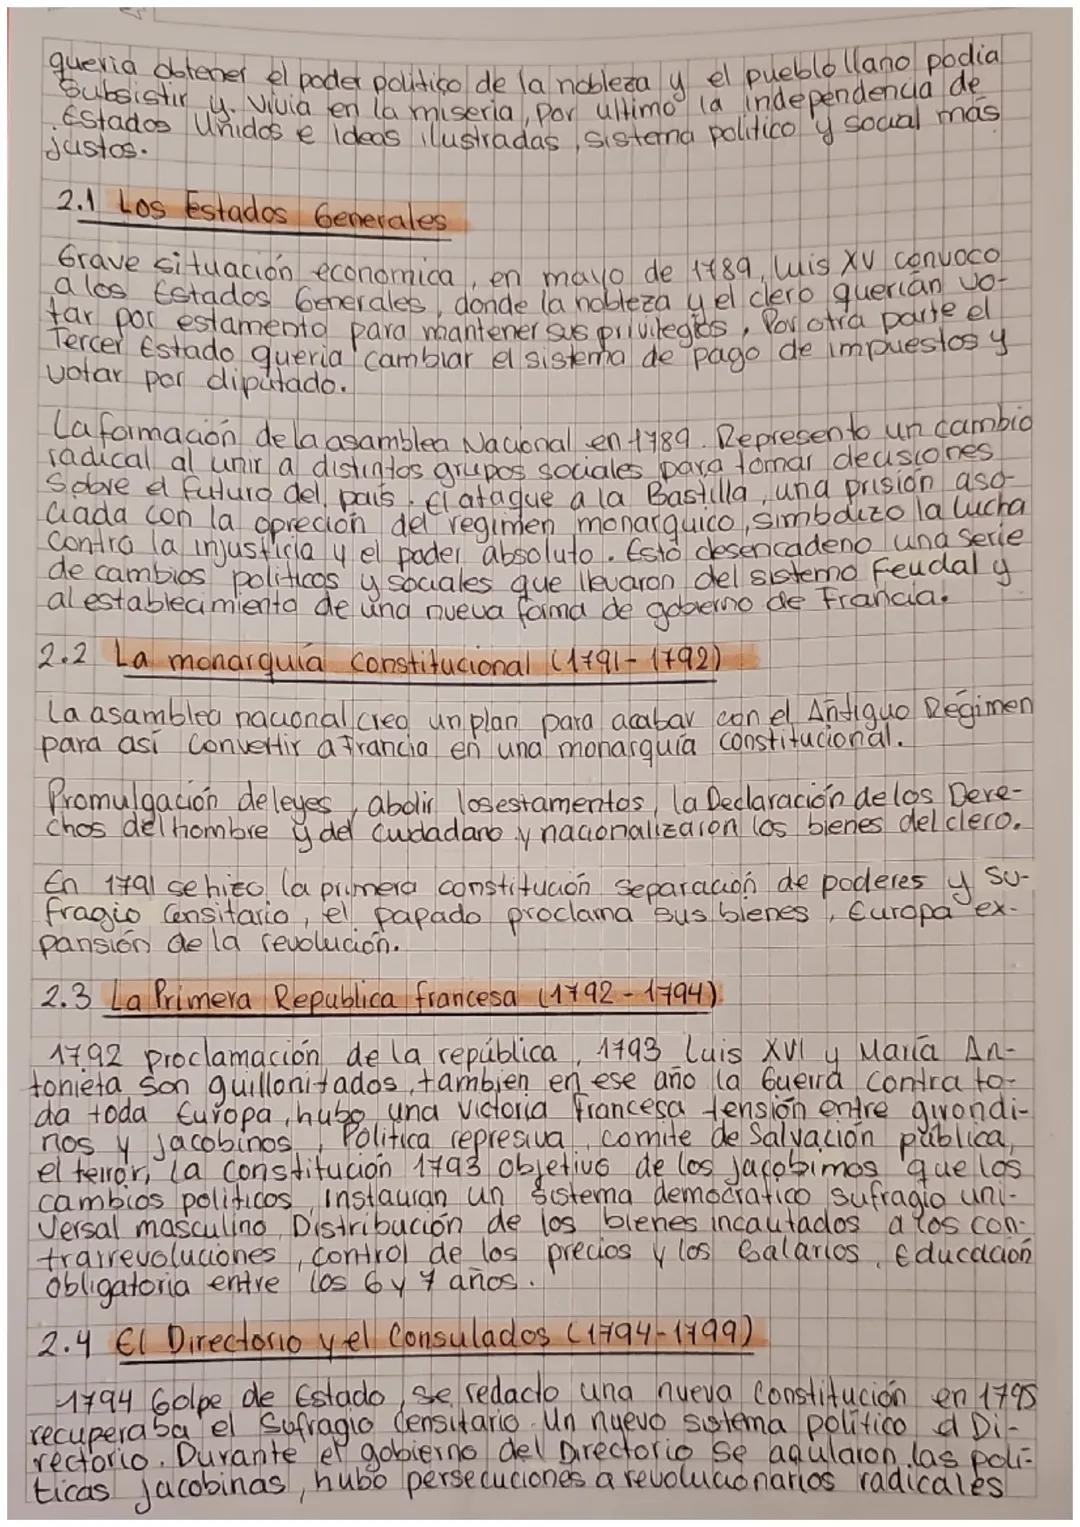 queria obtener el poder politico de la nobleza y el pueblo llano podia
Subsistir y vivia en la miseria, por ultimo la independencia de
Estados Unidos e Ideas ilustradas, sistema politico y social más
justos.
2.1 Los Estados Generales
Grave situación economica, en mayo de 1789, Luis XV convoco
a los Estados Generales, donde la nobleza y el clero querian vo-
tar por estamento para mantener sus privilegios, Por otra parte el
Tercer Estado queria cambiar el sistema de pago de impuestos y
votar por diputado.
La formación de la asamblea Nacional en 1789. Represento un cambio
radical al unir a distintos grupos sociales para tomar decisiones
Sobre el futuro del país. El ataque a la Bastilla, una prisión aso-
ciada con la opreción del regimen monarquico, simbolizo la lucha
contra la injusticia y el poder absoluto. Esto desencadeno una serie
de cambios politicos y sociales que llevaron del sistema Feudal y
al establecimiento de una nueva forma de gobierno de Francia.
2.2 La monarquia Constitucional (1791-1792)
La asamblea nacional creo un plan para acabar con el Antiguo Régimen
para así convertir a Francia en una monarquía constitucional.
Promulgación de leyes, abolir los estamentos, la Declaración de los Dere-
chos del hombre y del ciudadano y nacionalizaron los bienes del clero.
En 1791 se hizo la primera constitución separación de poderes y su-
fragio Censitario, el papado proclama sus bienes, Europa ex-
pansión de la revolución.
2.3 La Primera Republica francesa (1792-1794)
1792 proclamación de la república, 1793 Luis XVI y María An-
tonieta son guillonitados, tambien en ese año la Guerra contra to-
da toda Europa, hubo una victoria francesa tensión entre girondi-
nos y jacobinos, Politica represiva, comite de Salvación pública,
el terror, la constitución 1793 objetivo de los jacobimos que los
cambios politicos, instauran un sistema democratico sufragio uni-
versal masculino, Distribución de los bienes incautados a los con-
trarrevoluciones, control de los precios y los Salarios, Educación
obligatoria entre los 6 y 7 años.
2.4 El Directorio y el Consulados (1794-1799)
1794 Golpe de Estado, se redacto una nueva Constitución en 1795
recuperaba el Sufragio Censitario. Un nuevo sistema político el Di-
rectorio. Durante el gobierno del Directorio se aqularon las poli-
ticas jacobinas, hubo persecuciones a revolucionarios radicales